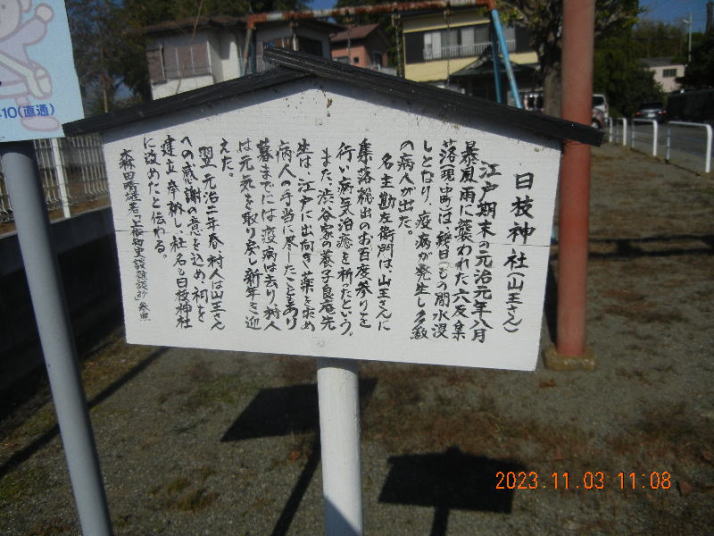 日枝神社(山王さん)
江戸期末の元治元年八月
暴風雨に襲われた六反集
落(現中町)は幾日もの間水浸
しとなり、疫病が発生し多数
の病人が出た。
名主勘左衛門は、山王さんに
集落総出のお百度参りを
行い病気治癒を祈ったという。
また、渋谷家の養子良庵先
生は、江戸に出向き薬を求め
病人の手当に尽したこともあり
暮までには疫病は去り、村人
は元気を取り戻し新年を迎
えた。
翌元治二年春、村人は山王さん
への感謝の意を込め、祠を
建立、奉納し、社名も日枝神社
に改めたと伝わる。
森田
-10(直通)
2023.11.03 11:08